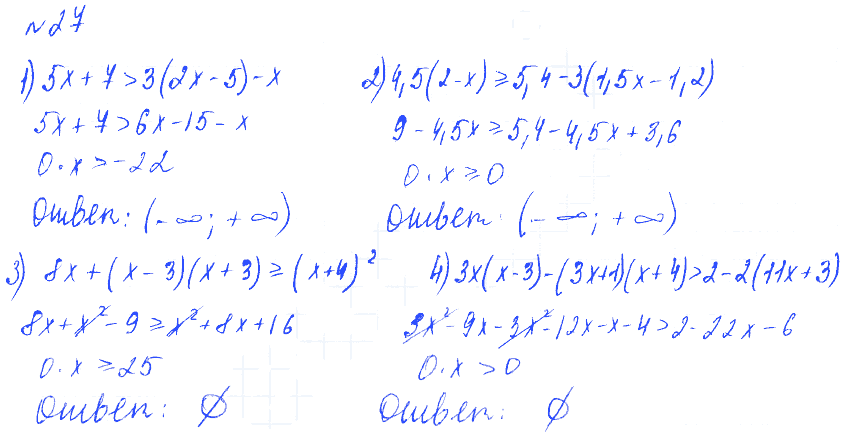 №27
1) 5x + 7 > 3(2x - 5) - x
5x + 7 > 6x - 15 - x
0 · x > -22
Ответ: (-∞; +∞)
2) 4,5(2-x) ≥ 5,4 - 3(1,5x - 1,2)
9 - 4,5x ≥ 5,4 - 4,5x + 3,6
0 · x ≥ 0
Ответ: (-∞; +∞)
3) 8x + (x - 3)(x + 3) ≥ (x+4)²
8x + x² - 9 ≥ x² + 8x + 16
0 · x ≥ 25
Ответ: ∅
4) 3x(x-3) - (3x+1)(x+4) > 2 - 2(11x+3)
3x² - 9x - 3x² - 12x - x - 4 > 2 - 22x - 6
0 · x > 0
Ответ: ∅